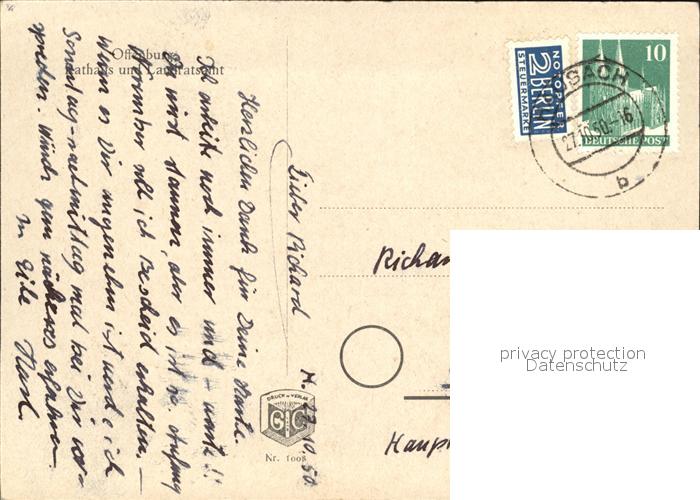 Offenburg
Rathaus und Landratsamt
H. 27.10.50.
Lieber Richard
Herzlichen Dank für Deine Karte.
Ich arbeite noch immer und – warte!!
Du wirst staunen, aber es ist so. Anfang
November soll ich Bescheid erhalten. –
Wenn es Dir angenehm ist werde ich
Sonntag-nachmittag mal bei Dir vor-
sprechen. Würde gern näheres erfahren.
In Eile
NOTOPFER
2 BERLIN
STEUERMARKE
10
DEUTSCHE POST
SACH
27.10.50.-16
b
DRUCK u. VERLAG
Nr. 1008
Haup
privacy protection
Datenschutz